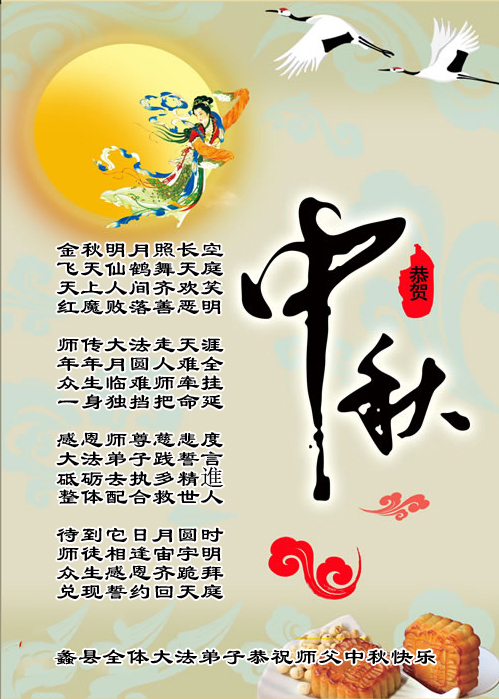 恭贺
中秋
金秋明月照长空
飞天仙鹤舞天庭
天上人间齐欢笑
红魔败落善恶明
师传大法走天涯
年年月圆人难全
众生临难师牵挂
一身独挡把命延
感恩师尊慈悲度
大法弟子践誓言
砥砺去执多精進
整体配合救世人
待到它日月圆时
师徒相逢宙宇明
众生感恩齐跪拜
兑现誓约回天庭
蠡县全体大法弟子恭祝师父中秋快乐